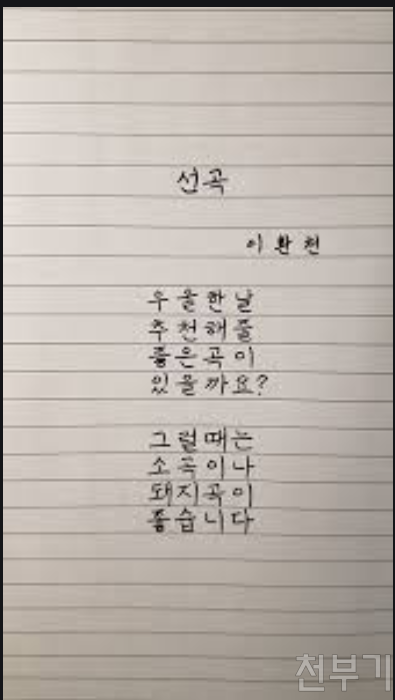 선곡
이환천
우울한날
추천해줄
좋은곡이
있을까요?
그럴때는
소곡이나
돼지곡이
좋습니다
천부기